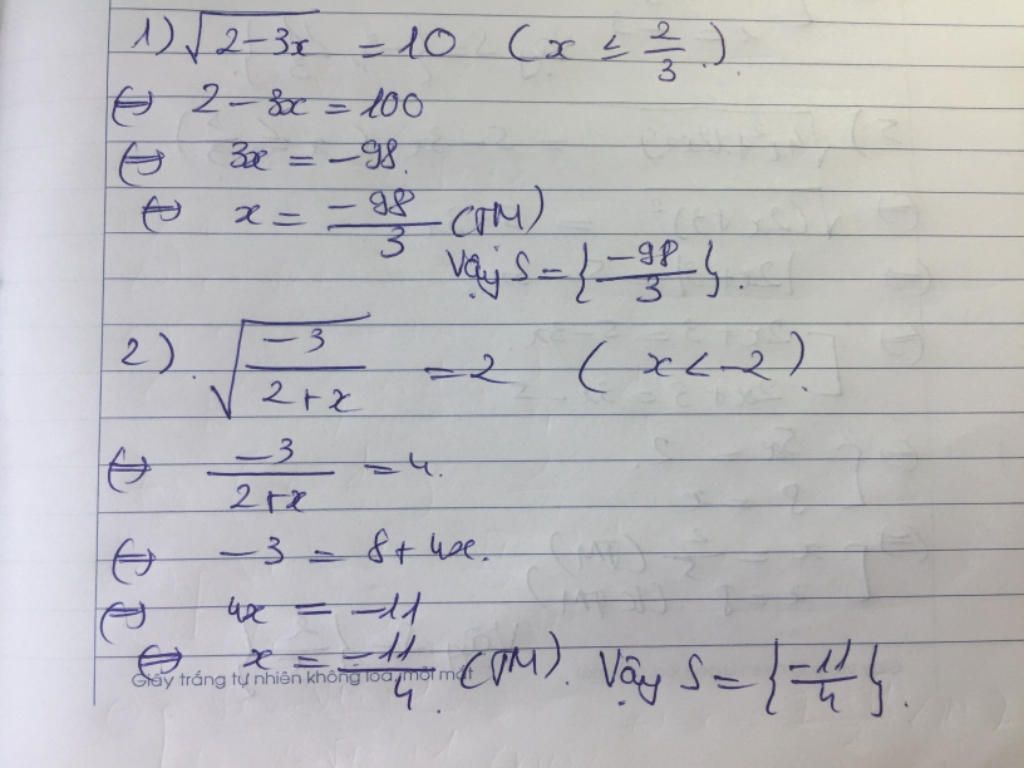 1) √(2-3x) = 10 (x ≤ 2/3).
⇔ 2 - 3x = 100
⇔ 3x = -98.
⇔ x = -98/3 (TM)
Vậy S = {-98/3}.
2). √(-3/(2+x)) = 2 (x < -2).
⇔ -3/(2+x) = 4.
⇔ -3 = 8 + 4x.
⇔ 4x = -11
⇔ x = -11/4. (TM). Vậy S = {-11/4}.
Giấy trắng tự nhiên không lóa, mỏi mắt